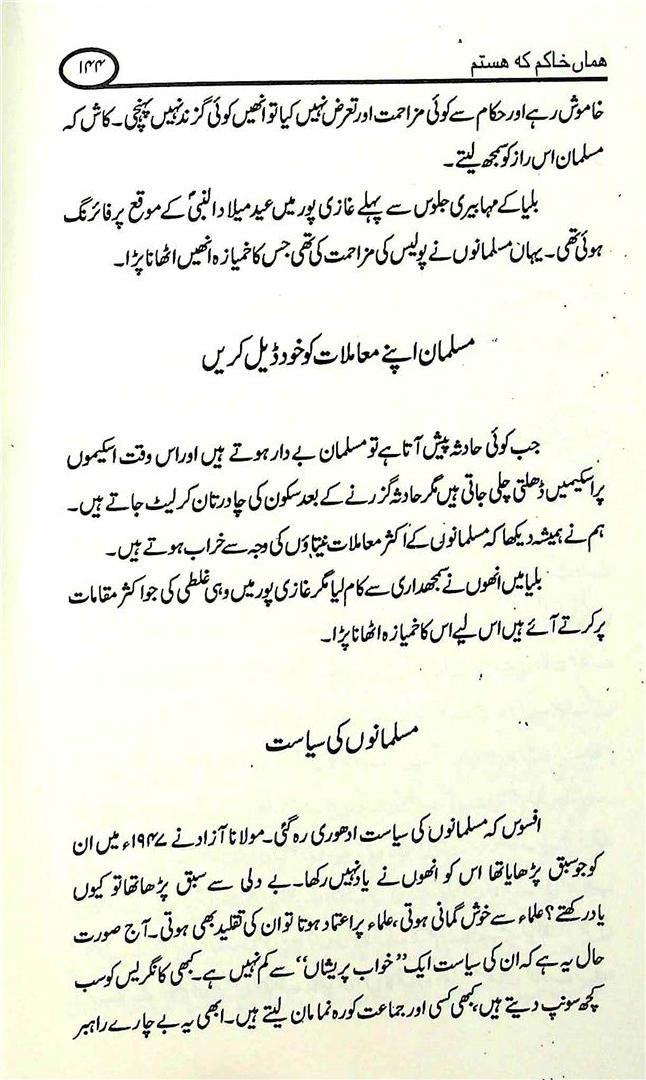 ھماں خاکم کہ ھستم
۱۴۴
خاموش رہے اور حکام سے کوئی مزاحمت اور تعرض نہیں کیا تو انھیں کوئی گزند نہیں پہنچی۔ کاش کہ
مسلمان اس راز کو سمجھ لیتے۔
بلیا کے مہابیری جلوس سے پہلے غازی پور میں عید میلاد النبیؐ کے موقع پر فائرنگ
ہوئی تھی۔ یہاں مسلمانوں نے پولیس کی مزاحمت کی تھی جس کا خمیازہ انھیں اٹھانا پڑا۔
مسلمان اپنے معاملات کو خود ڈیل کریں
جب کوئی حادثہ پیش آتا ہے تو مسلمان بے دار ہوتے ہیں اور اس وقت اسکیموں
پر اسکیمیں ڈھلتی چلی جاتی ہیں مگر حادثہ گزرنے کے بعد سکون کی چادر تان کر لیٹ جاتے ہیں۔
ہم نے ہمیشہ دیکھا کہ مسلمانوں کے اکثر معاملات نیتاؤں کی وجہ سے خراب ہوتے ہیں۔
بلیا میں انھوں نے سمجھداری سے کام لیا مگر غازی پور میں وہی غلطی کی جو اکثر مقامات
پر کرتے آئے ہیں اس لیے اس کا خمیازہ اٹھانا پڑا۔
مسلمانوں کی سیاست
افسوس کہ مسلمانوں کی سیاست ادھوری رہ گئی۔ مولانا آزاد نے ۱۹۴۷ء میں ان
کو جو سبق پڑھایا تھا اس کو انھوں نے یاد نہیں رکھا۔ بے دلی سے سبق پڑھا تھا تو کیوں
یاد رکھتے؟ علماء سے خوش گمانی ہوتی، علماء پر اعتماد ہوتا تو ان کی تقلید بھی ہوتی۔ آج صورت
حال یہ ہے کہ ان کی سیاست ایک ’’خواب پریشاں‘‘ سے کم نہیں ہے۔ کبھی کانگریس کو سب
کچھ سونپ دیتے ہیں، کبھی کسی اور جماعت کو رہ نما مان لیتے ہیں۔ ابھی یہ بے چارے راہبر